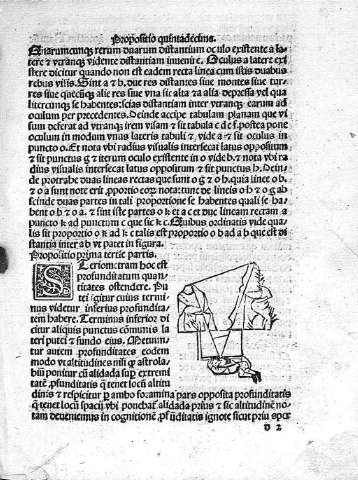 Propositio quintadecima.
Quarumcunqz rerum duarum distantium oculo existente a la
tere & verunqz vidente distantiam invenire. Oculus a latere exi
stere dicitur quando non est eadem recta linea cum istis duabus
rebus visis. Sint a & h. due res distantes siue montes siue tur
res siue quecunqz alie res siue vna sit alta & alia depressa vel qua
litercunqz se habentes: scias distantiam inter verunqz earum ad
oculum per precedentes. Deinde accipe tabulam planam quevi
sum deferat ad verunqz irem visam & sit tabula c d e f. postea pone
oculum in modum vnius lateris tabuli &, vide a & sit oculus in
puncto o. Et nota vbi radius visualis intersecat latus oppositum
& sit punctus g & iterum oculo existente in o vide h. & nota vbi ra
dius visualis intersecat latus oppositum & sit punctus h. Dein
de protrahe duas lineas rectas que sunt o g & o h. quia linee o h.
& o a sunt note eri, pportio eorz nota: tunc de lineis o h & o g ab
scinde duas partes in tali proportione se habentes quali se ha
bent o h & o a. & sint iste partes o k & a c et duc lineam rectam a
puncto k ad punctum c que sit k c. Quibus ordinatis vide qua
lis sit proportio o k ad k c talis est proportio o h ad a h que est di
stantia inter a h vt patet in figura.
Propositio prima tertie partis.
Seriom: tram hoc est
profunditatum quan
titates ostendere. Pu
tei igitur cuius termi
nus videtur inferius profundita
tem habere. Terminus inferior di
citur aliquis punctus cōmunis la
teri putei & fundo eius. Metiun
tur autem profunditates eodem
modo vt altitudines nisi qz astrola,
biū ponitur cū alidada supz extremi
tatē, pfunditatis qz tenet locū altitu
dinis & respicitur p ambo foramina pars opposita profunditatis
qz tenet locū spacij vbi ponebat alidada prius & sic altitudinē no
tam deuenimus in cognitionē, pfūditatis ignote sicut prius spcx
d 2